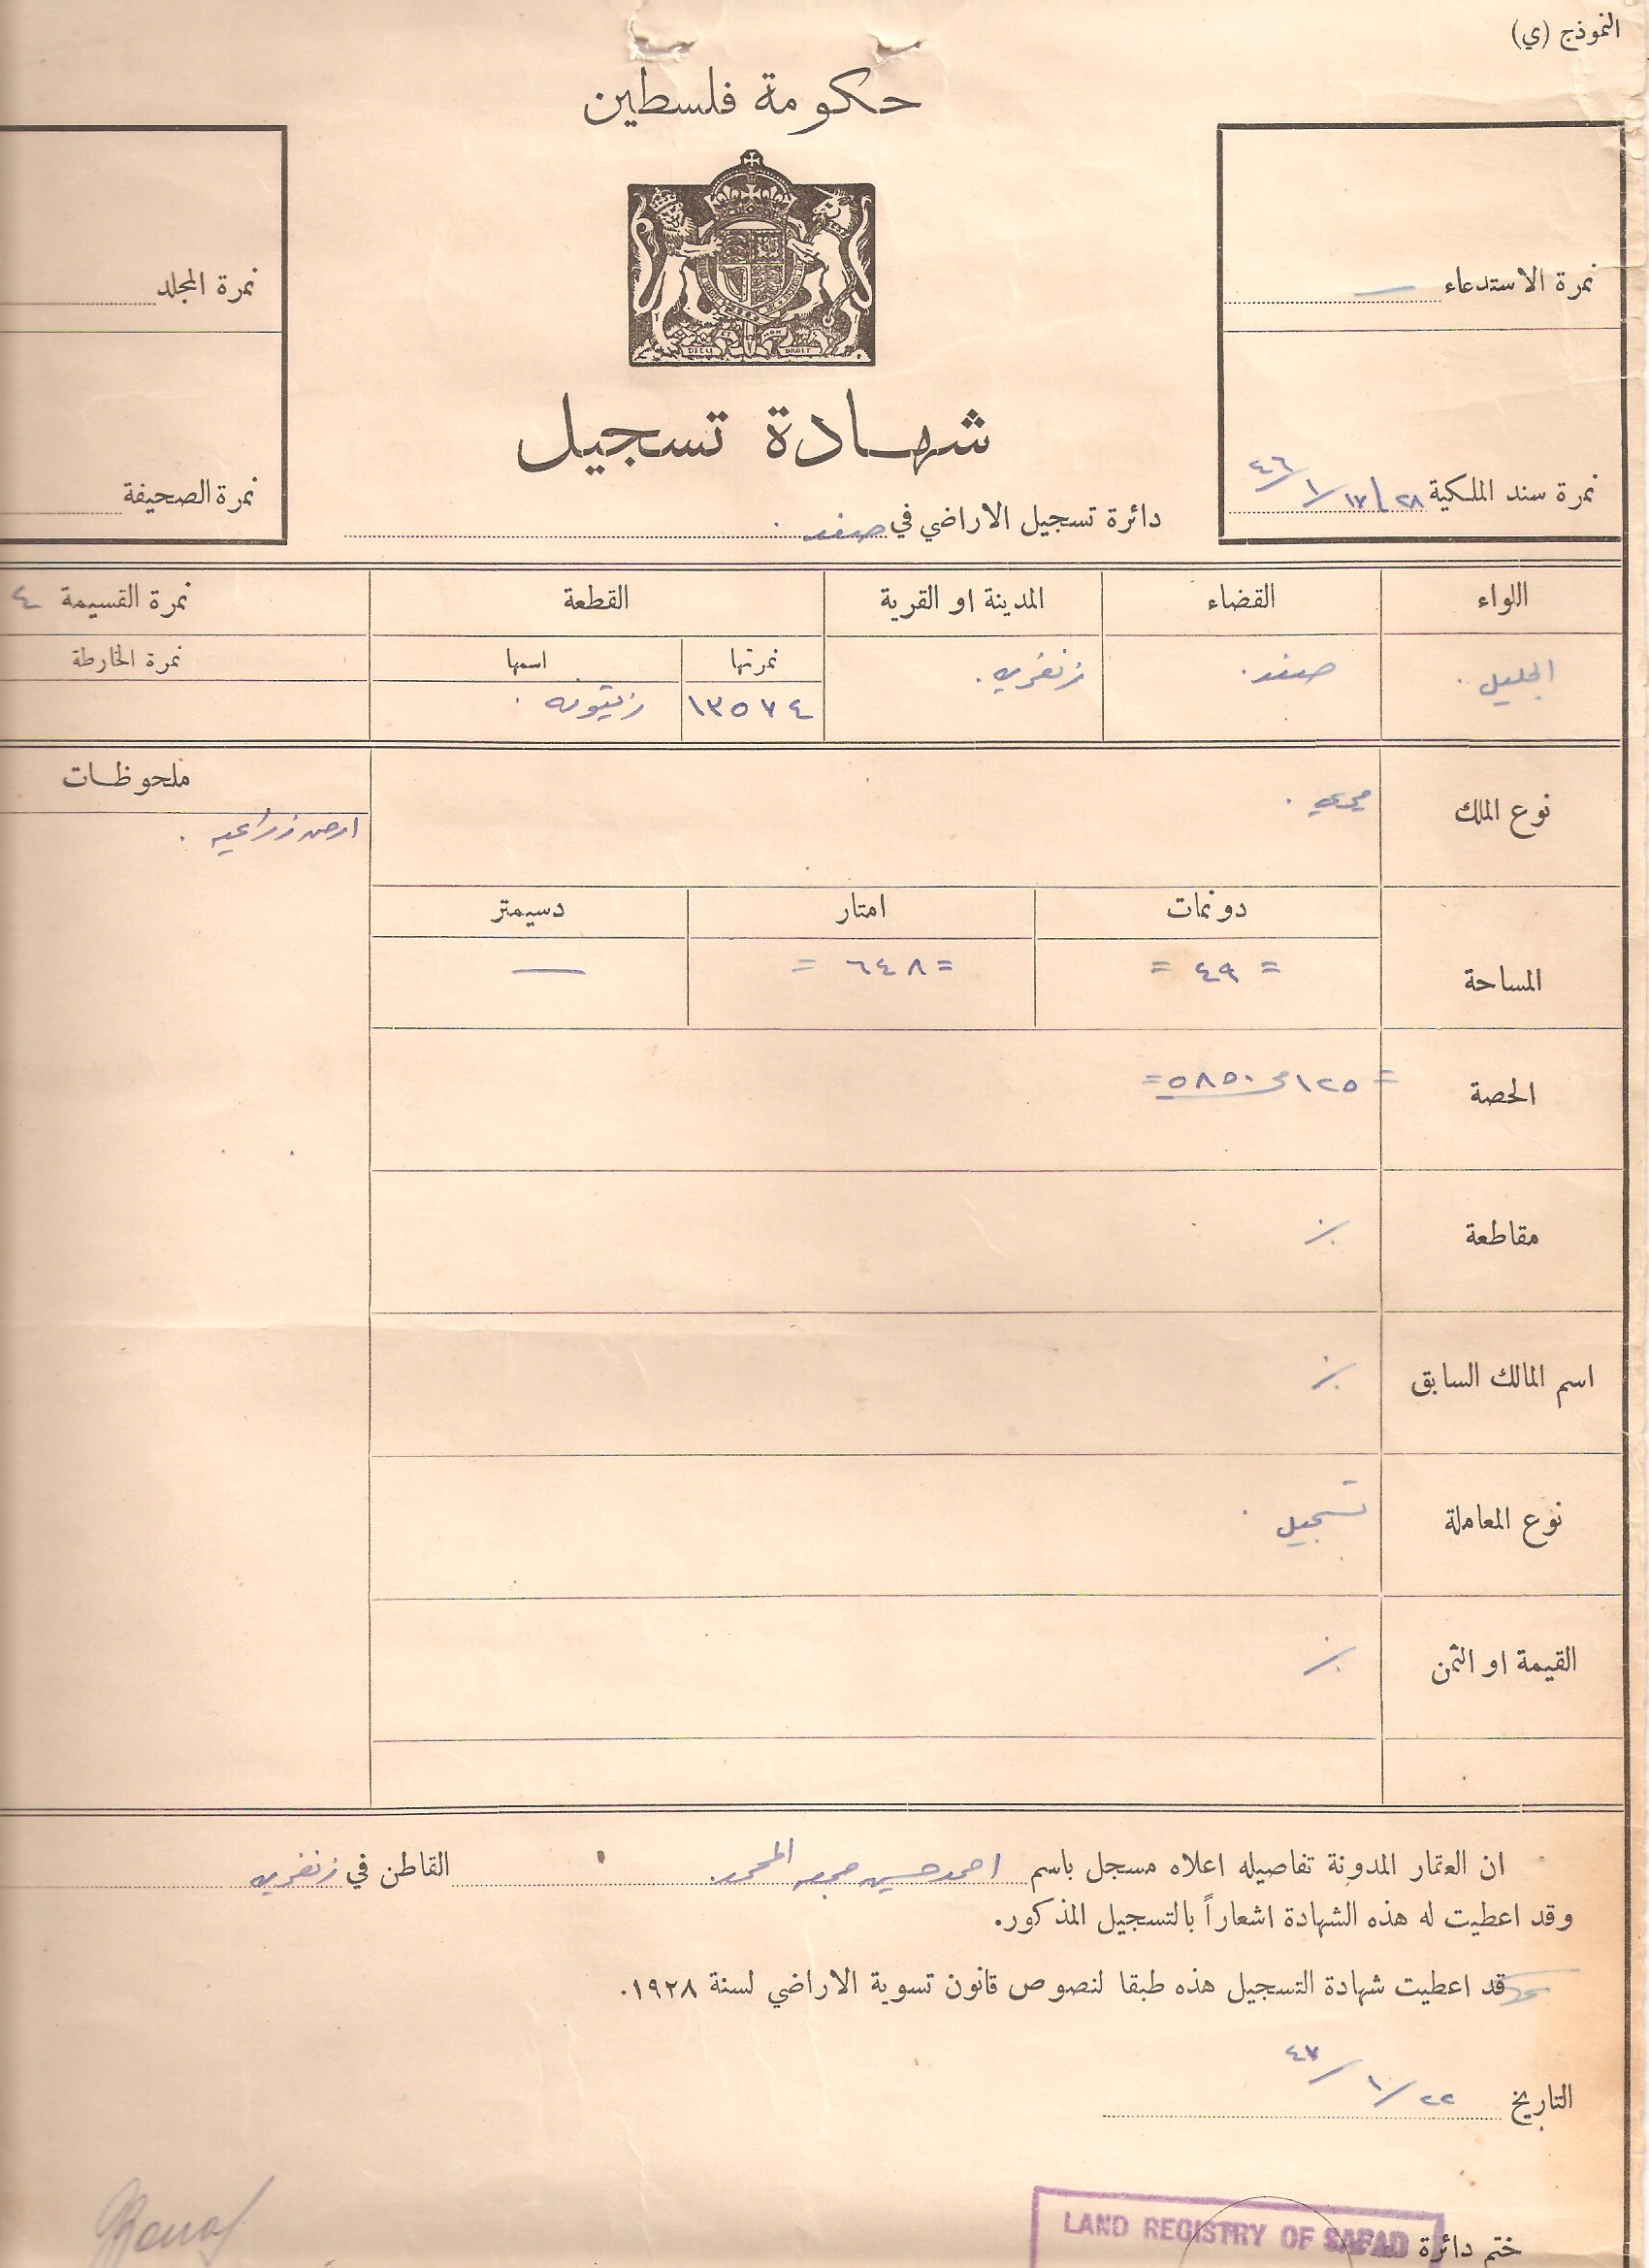 النموذج (ي)
حكومة فلسطين
DIEU ET MON DROIT
نمرة الاستدعاء —
نمرة المجلد
شهادة تسجيل
نمرة سند الملكية ٢٨ / ١٧ / ١ / ٤٦
نمرة الصحيفة
دائرة تسجيل الاراضي في صفد
اللواء القضاء المدينة او القرية القطعة نمرة القسيمة ٤
نمرتها اسمها نمرة الخارطة
الجليل صفد زنغريه ١٣٥٧٤ زيتونه
نوع الملك ميري
ملحوظات
ارض زراعيه
دونمات امتار دسيمتر
المساحة = ٤٩ = = ٦٤٨ = —
الحصة = ١٢٥ من ٥٨٥٠ =
مقاطعة ٪
اسم المالك السابق ٪
نوع المعاملة تسجيل
القيمة او الثمن ٪
ان العقار المدونة تفاصيله اعلاه مسجل باسم احمد حسين المحمد القاطن في زنغريه
وقد اعطيت له هذه الشهادة اشعاراً بالتسجيل المذكور.
قد اعطيت شهادة التسجيل هذه طبقا لنصوص قانون تسوية الاراضي لسنة ١٩٢٨.
التاريخ ٢٢ / ١ / ٤٧
LAND REGISTRY OF SAFAD
ختم دائرة